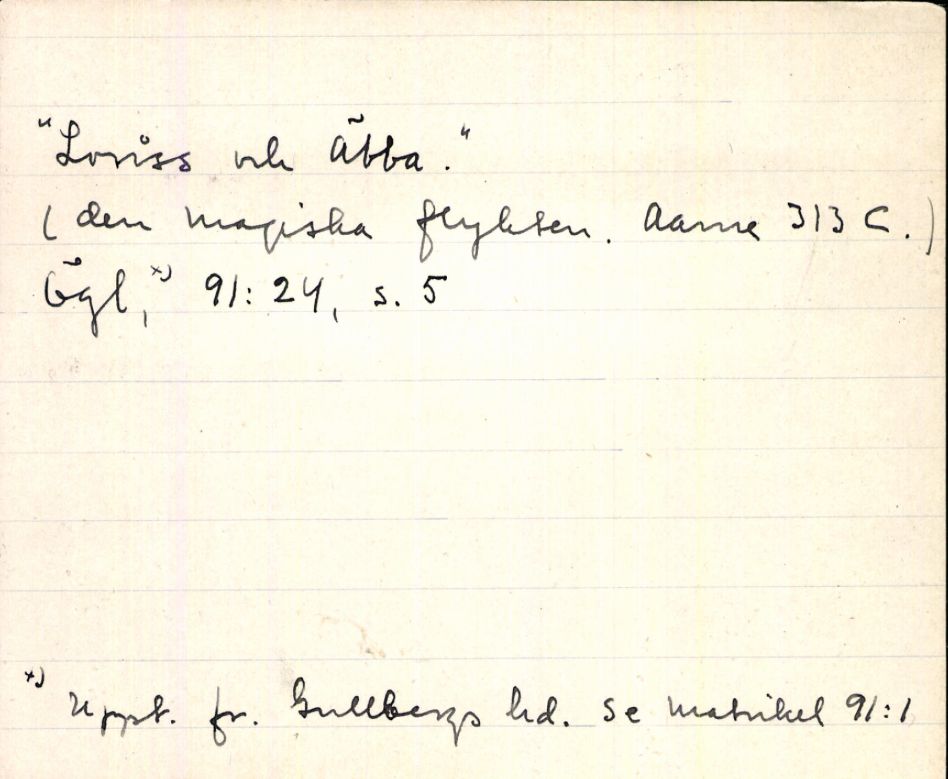 "Loriss och Äbba."
(den magiska flykten. Aarne 313 C.)
Ögl,ˣ⁾ 91:24, s. 5
ˣ⁾ Uppt. fr. Gullbergs hd. Se Matrikel 91:1